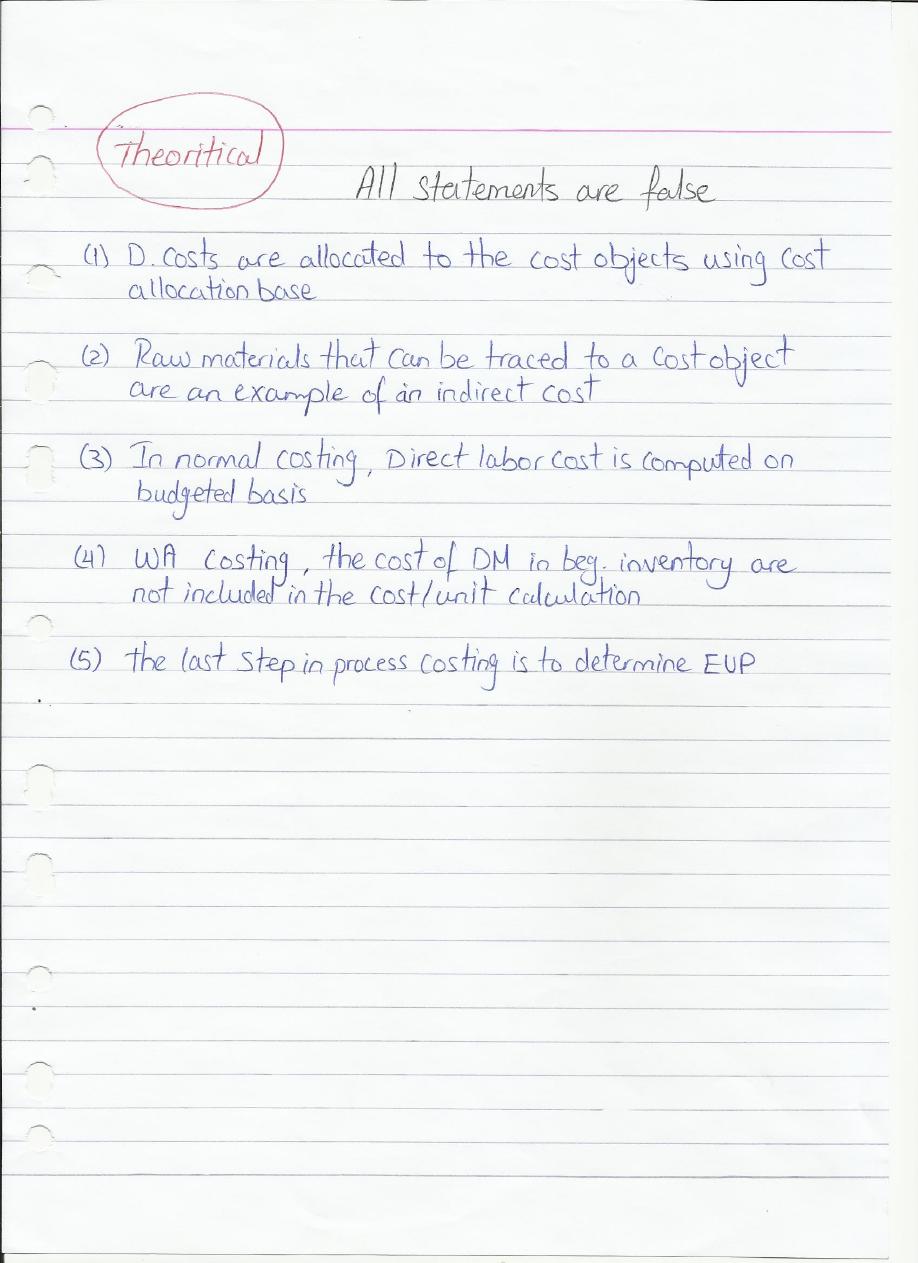 Theoritical
All statements are false
(1) D. costs are allocated to the cost objects using cost
allocation base
(2) Raw materials that can be traced to a cost object
are an example of an indirect cost
(3) In normal costing, Direct labor cost is computed on
budgeted basis
(4) WA costing, the cost of DM in beg. inventory are
not included in the cost/unit calculation
(5) the last step in process costing is to determine EUP